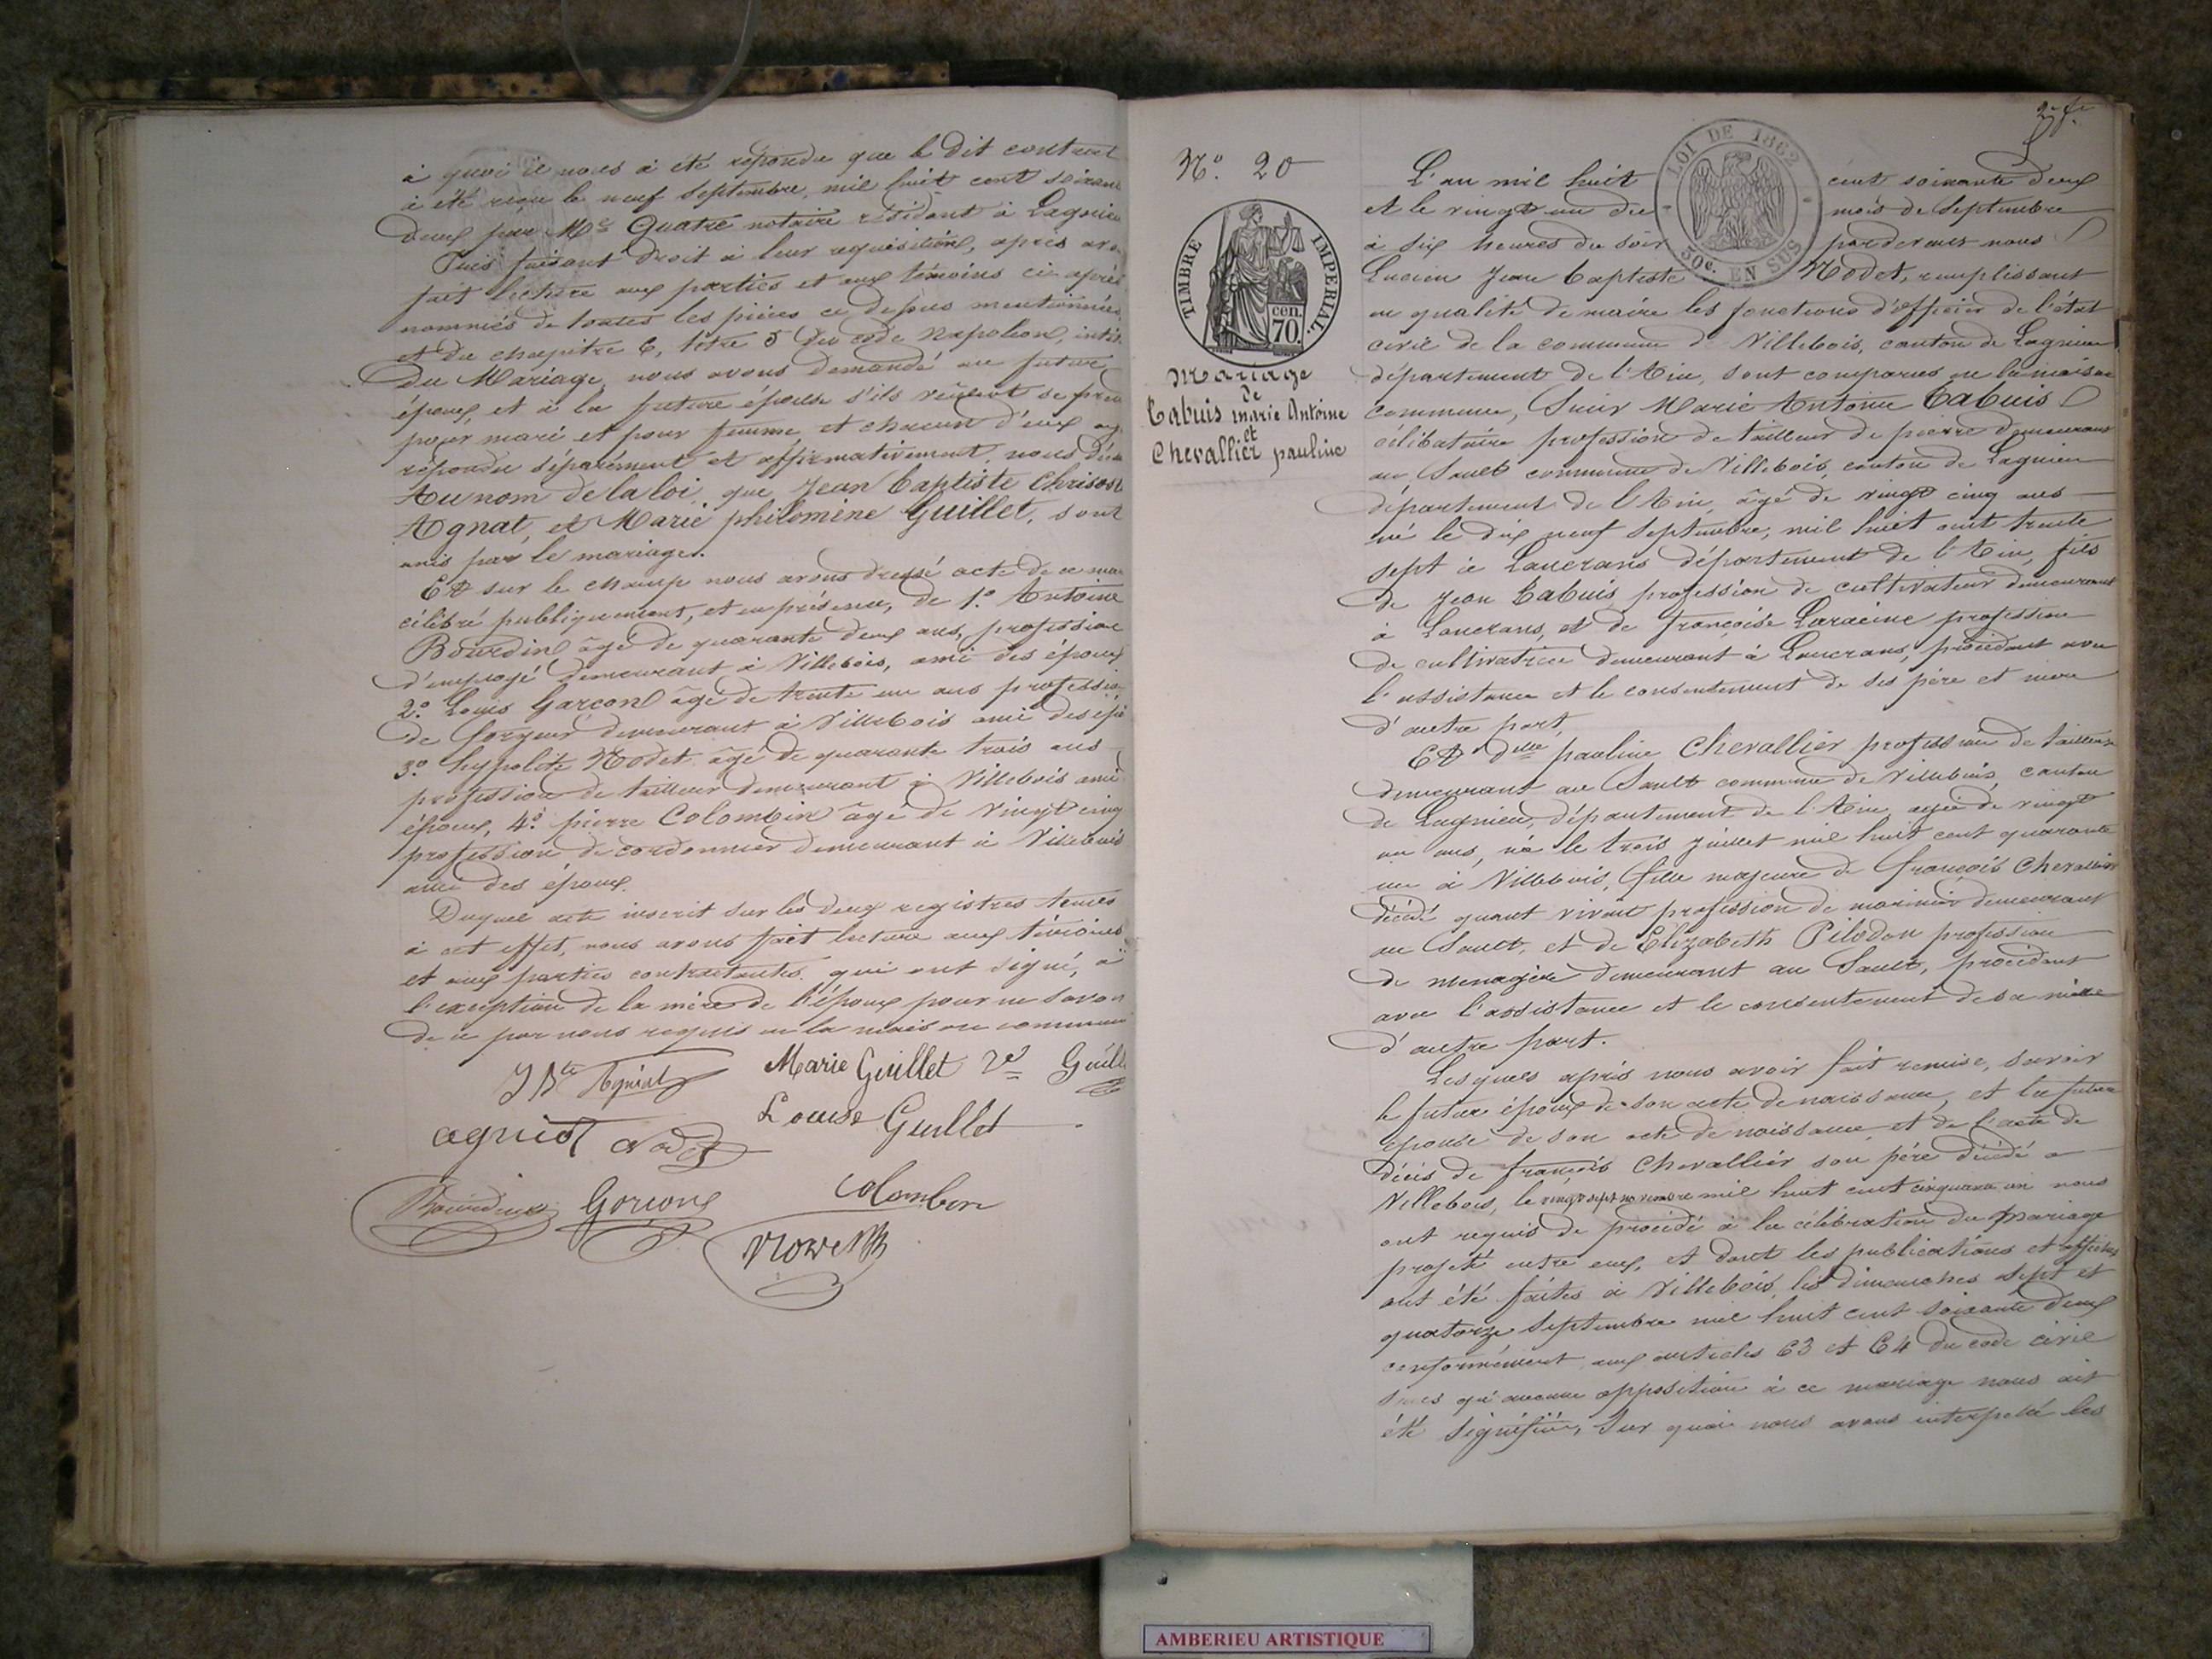 à quoi il nous a été répondu que le dit contract
a été reçu le neuf septembre, mil huit cent soixant
deux par Me Quatre notaire résidant à Lagnieu
Puis faisant droit à leur requisition, après avoir
fait lecture aux parties et aux témoins ci après
nommés de toutes les pièces ci dessus mentionnées,
et du chapitre 6, titre 5 du code Napoléon, intit.
du Mariage, nous avons demandé au futur
époux, et à la future épouse s'ils veulent se prend
pour mari et pour femme, et chacun d'eux ay
répondu séparément et affirmativement, nous décl
Au nom de la loi, que Jean Baptiste Chrisost
Agnat, et Marie philomine Guillet, sont
unis par le mariage.
Et sur le champ nous avons dressé acte de ce mar
célébré publiquement, et en présence, de 1.o Antoine
Bourdin âgé de quarante deux ans, profession
d'employé demeurant à Villebois, ami des époux
2.o Louis Garçon âgé de trente un ans profession
de forgeur demeurant à Villebois ami des épo
3.o hypolite Rodet âgé de quarante trois ans
profession de tailleur demeurant à Villebois ami
époux, 4.o pierre Colombin âgé de vingt cinq
profession de cordonnier demeurant à Villebois
ami des époux.
Duquel acte inscrit sur les deux registres tenus
à cet effet, nous avons fait lecture aux témoins
et aux parties contractantes qui ont signé, à
l'exception de la mère de l'époux pour ne savoir
de ce par nous requis en la maison commune
JBte Agniat Marie Guillet Ve Guill
Louise Guillet
agniat Rodet
Bourdin Gorion Colombin
2.e f.e
N.o 20
TIMBRE IMPERIAL.
cen. 70.
Mariage
de
Cabuis marie Antoine
et
Chevallier pauline
LOI DE 1862
50c. EN SUS
L'an mil huit cent soixante deux
et le vingt un du mois de Septembre
à six heures du soir pardevant nous
Lucien Jean Baptiste Rodet, remplissant
en qualité de maire les fonctions d'officier de l'état
civil de la commune d Villebois, canton de Lagnieu
département de l'Ain, sont comparus en la maison
commune, Sieur Marie Antoine Cabuis
célibataire profession de tailleur de pierre demeurant
au Sault commune de Villebois, canton de Lagnieu
département de l'Ain, âgé de vingt cinq ans
né le dix neuf Septembre, mil huit cent trente
sept à Lancrans département de l'Ain, fils
de Jean Cabuis profession de cultivateur demeurant
à Lancrans, et de françoise Laracine profession
de cultivatrice demeurant à Lancrans, procédant avec
l'assistance et le consentement de ses père et mère
d'autre part,
Et dlle pauline Chevallier profession de tailleuse
demeurant au Sault commune de Villebois, canton
de Lagnieu, département de l'Ain agée de vingt
un ans, né le trois Juillet mil huit cent quarante
un à Villebois, fille majeure de françois Chevallier
décédé quant vivant profession de marinier demeurant
au Sault, et de Elizabeth Pilodon profession
de menagère demeurant au Sault, procédant
avec l'assistance et le consentement de sa mère
d'autre part.
Lesquels après nous avoir fait remise, savoir
le futur époux de son acte de naissance, et la future
épouse de son acte de naissance et de l'acte de
décès de françois Chevallier son père décédé à
Villebois, le vingt sept novembre mil huit cent cinquante un nous
ont requis de procédé à la célébration du mariage
projeté entre eux, et dont les publications et affiches
ont été faites à Villebois, les dimanches sept et
quatorze Septembre mil huit cent soixante deux
conformément aux articles 63 et 64 du code civil
sans qu'aucune opposition à ce mariage nous ait
été signifiée, Sur quoi nous avons interpellé les
AMBERIEU ARTISTIQUE